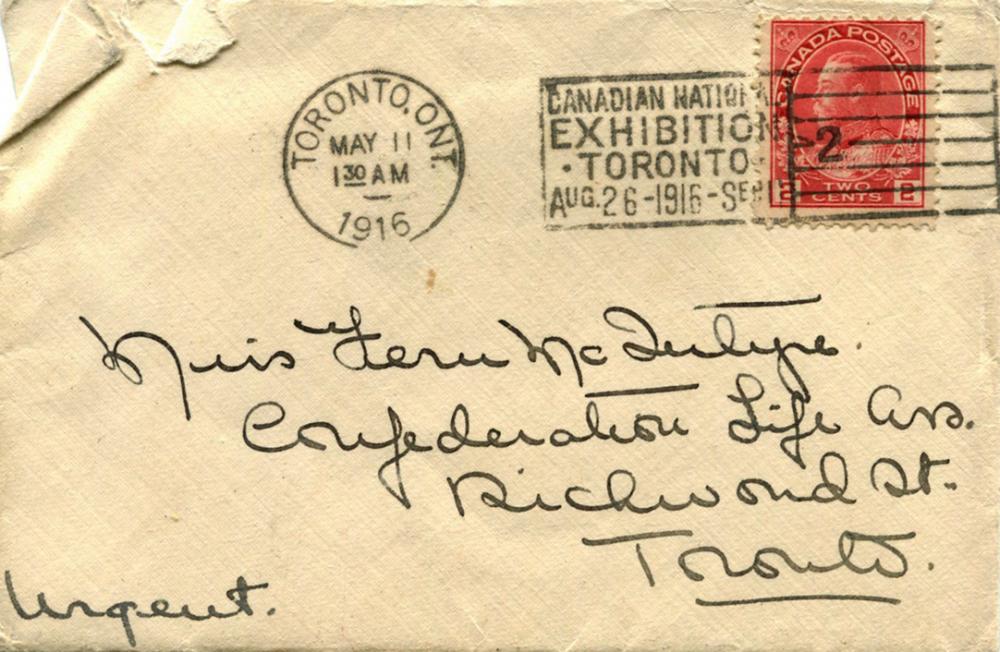 TORONTO, ONT.
MAY 11
1 30 AM
1916
CANADIAN NATIONA
EXHIBITION
· TORONTO ·
AUG. 26 - 1916 - SEP 1
CANADA POSTAGE
2
2 TWO CENTS 2
Miss Fern McIntyre.
Confederation Life Ass.
Richmond St.
Toronto.
Urgent.